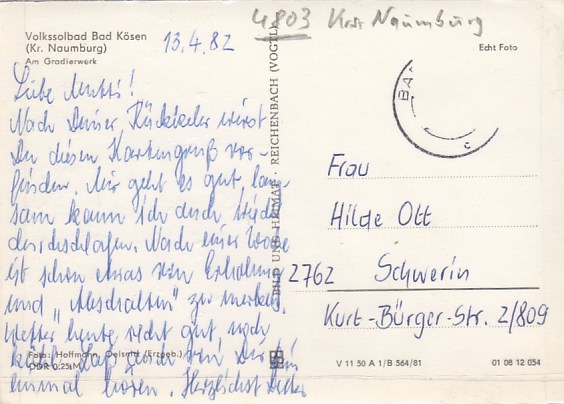 4803 Krs Naumburg
Volkssolbad Bad Kösen
(Kr. Naumburg)
Am Gradierwerk
13.4.82
Echt Foto
Liebe Mutti!
Nach Deiner Rückkehr wirst
Du diesen Kartengruß vor-
finden. Mir geht es gut, lang-
sam kann ich auch wieder
durchschlafen. Nach einer Woche
ist schon etwas von Erholung
und „Abschalten" zu merken.
Wetter heute recht gut, noch
kühl. Laß von Dir
einmal hören. Herzlichst
Foto: Hoffmann, Oelsnitz (Erzgeb.)
DDR 0,25 M
BILD UND HEIMAT REICHENBACH (VOGTL)
BA
Frau
Hilde Ott
2762 Schwerin
Kurt-Bürger-Str. 2/809
V 11 50 A 1/B 564/81
01 08 12 054